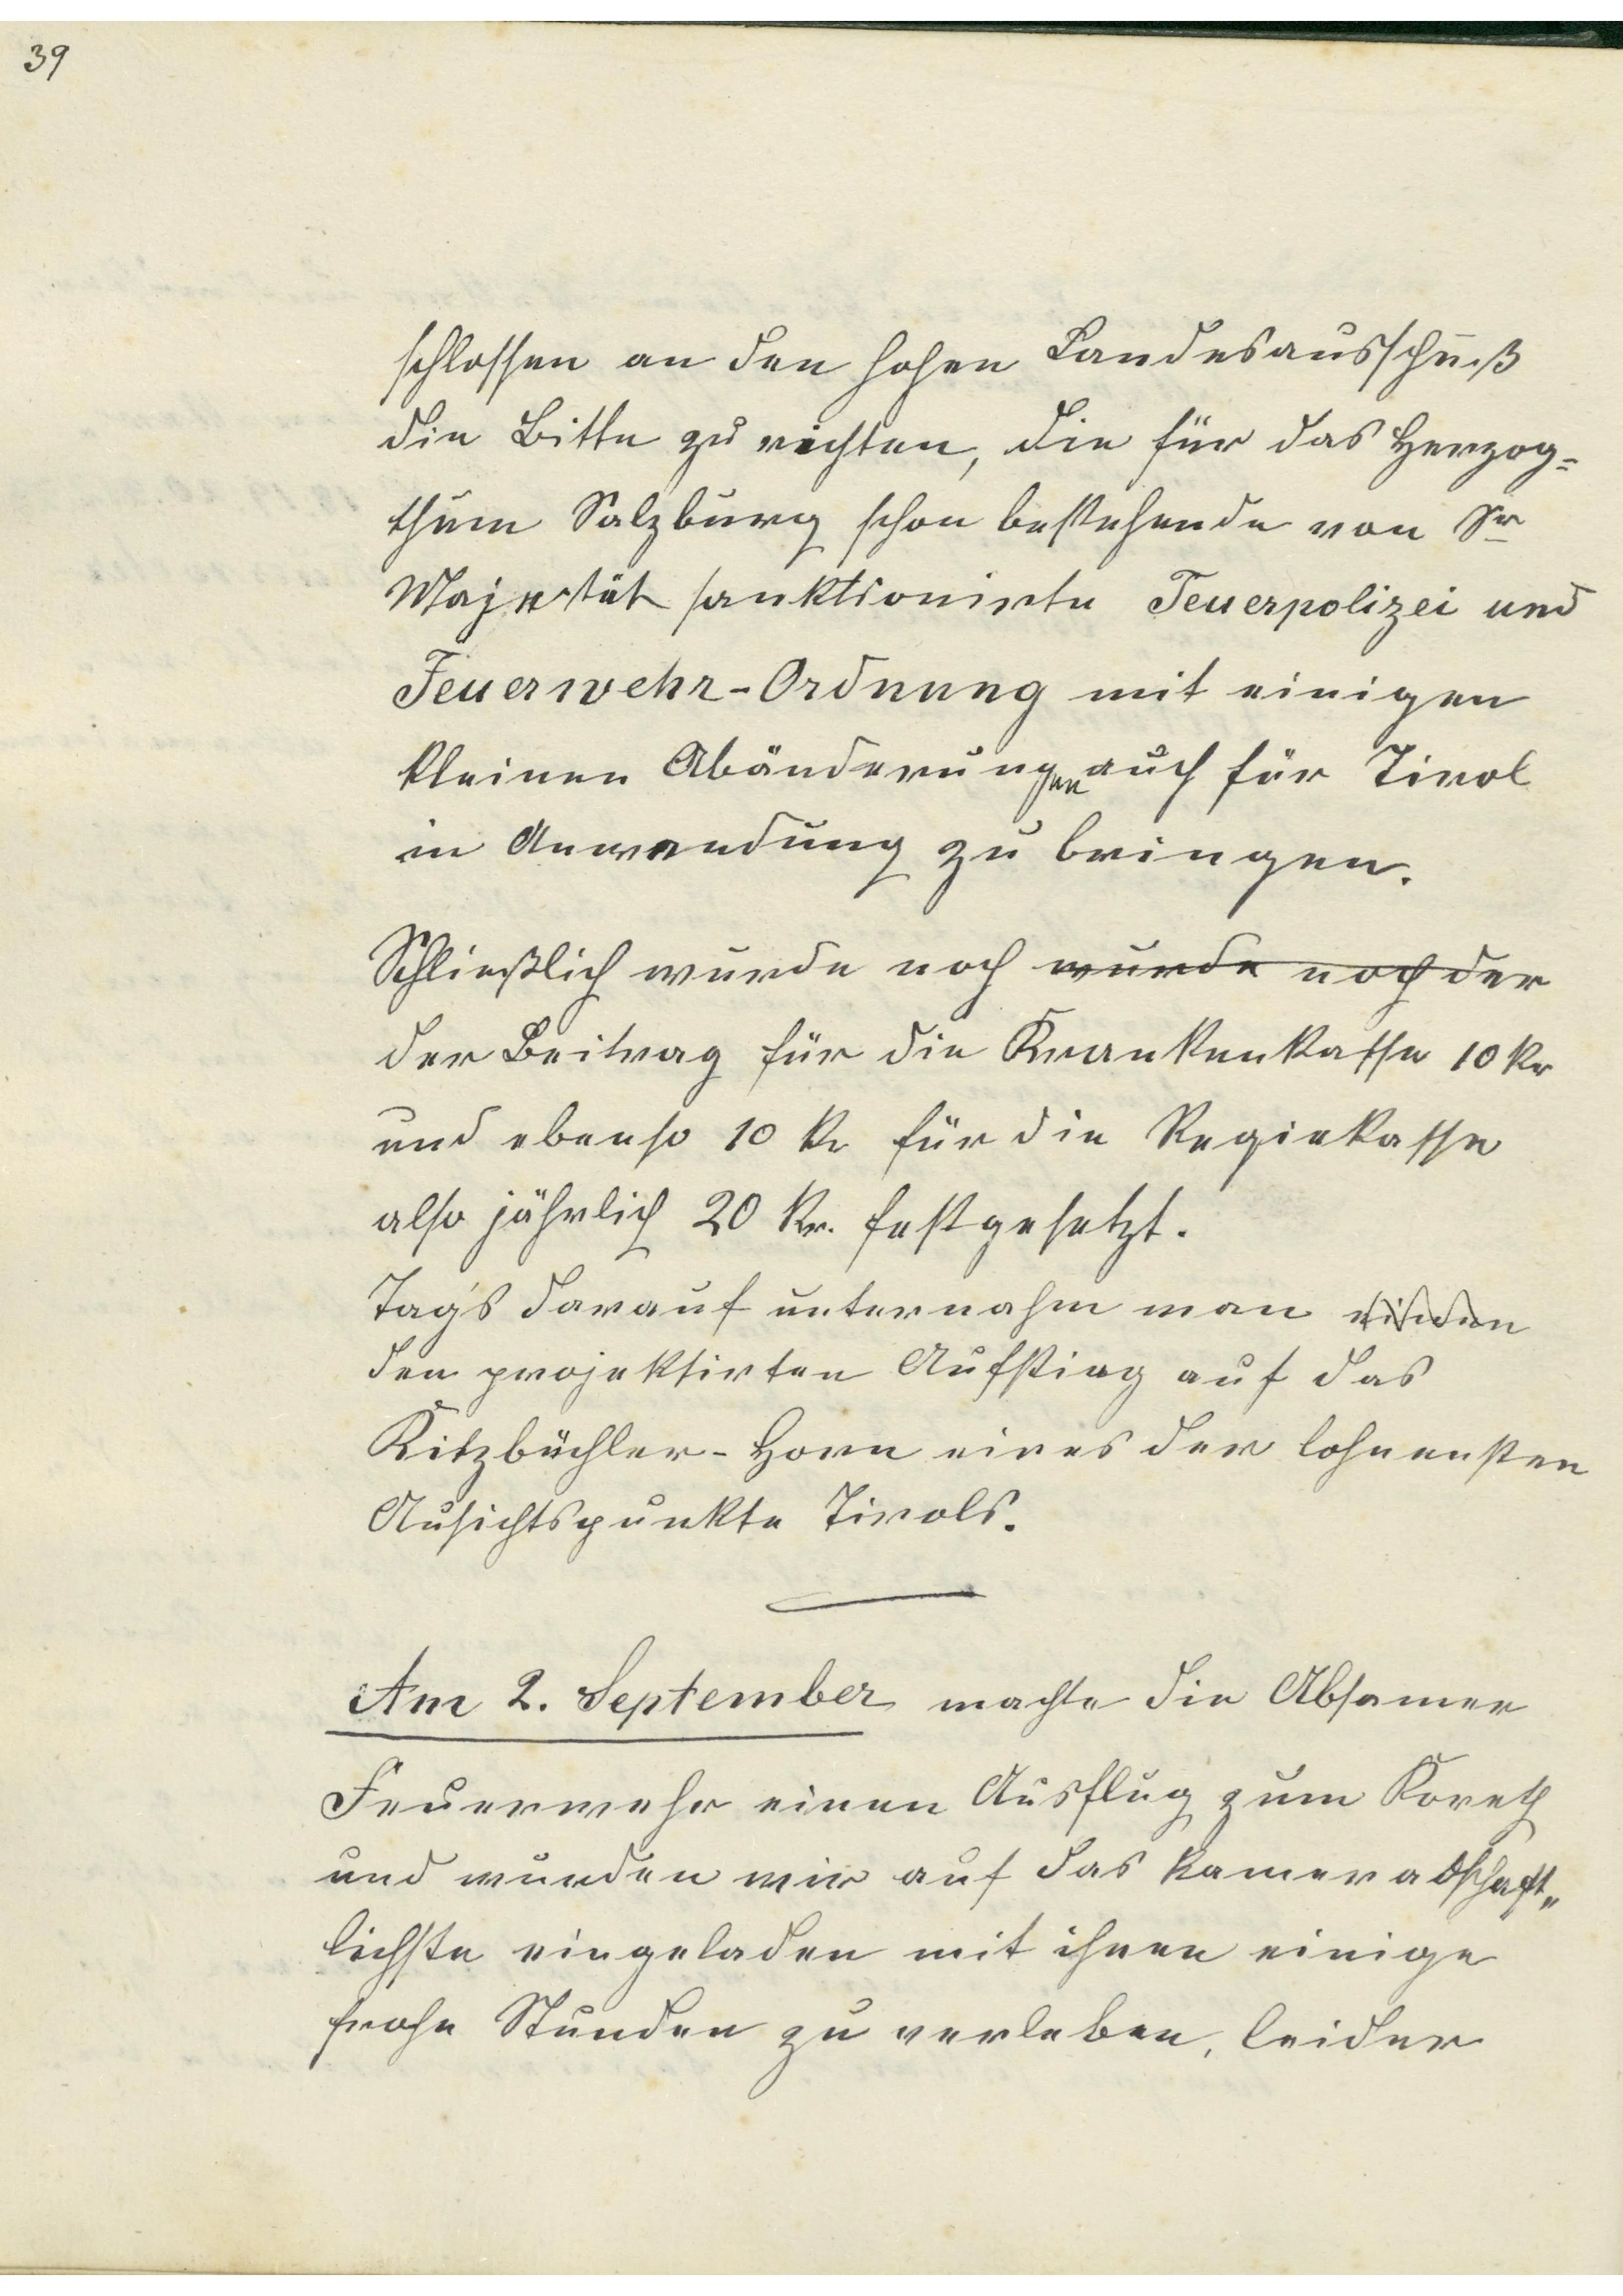 39
schlossen an den hohen Landesausschuß
die Bitte zu richten, die für das Herzog=
thum Salzburg schon bestehende von Sr
Majestät sanktionirte Feuerpolizei und
Feuerwehr-Ordnung mit einigen
kleinen Abänderungen auch für Tirol
in Anwendung zu bringen.
Schließlich wurde noch wurde noch der
der Beitrag für die Krankenkasse 10 kr
und ebenso 10 kr für die Regiekasse
also jährlich 20 kr. festgesetzt.
Tags darauf unternahm man
den projektirten Aufstieg auf das
Kitzbüchler-Horn eines der lohnensten
Ausichtspunkte Tirols.
Am 2. September machte die Absamer
Feuerwehr einen Ausflug zum Koreth
und wurden wir auf das kameradschaft„
lichste eingeladen mit ihnen einige
frohe Stunden zu verleben, leider